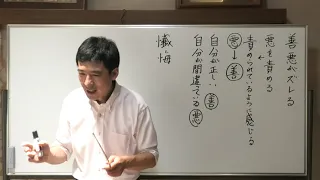 善悪がズレる
悪を責める
責めているように感じる
悪→善
自分が正しい 善
自分が間違っている 悪
懺悔